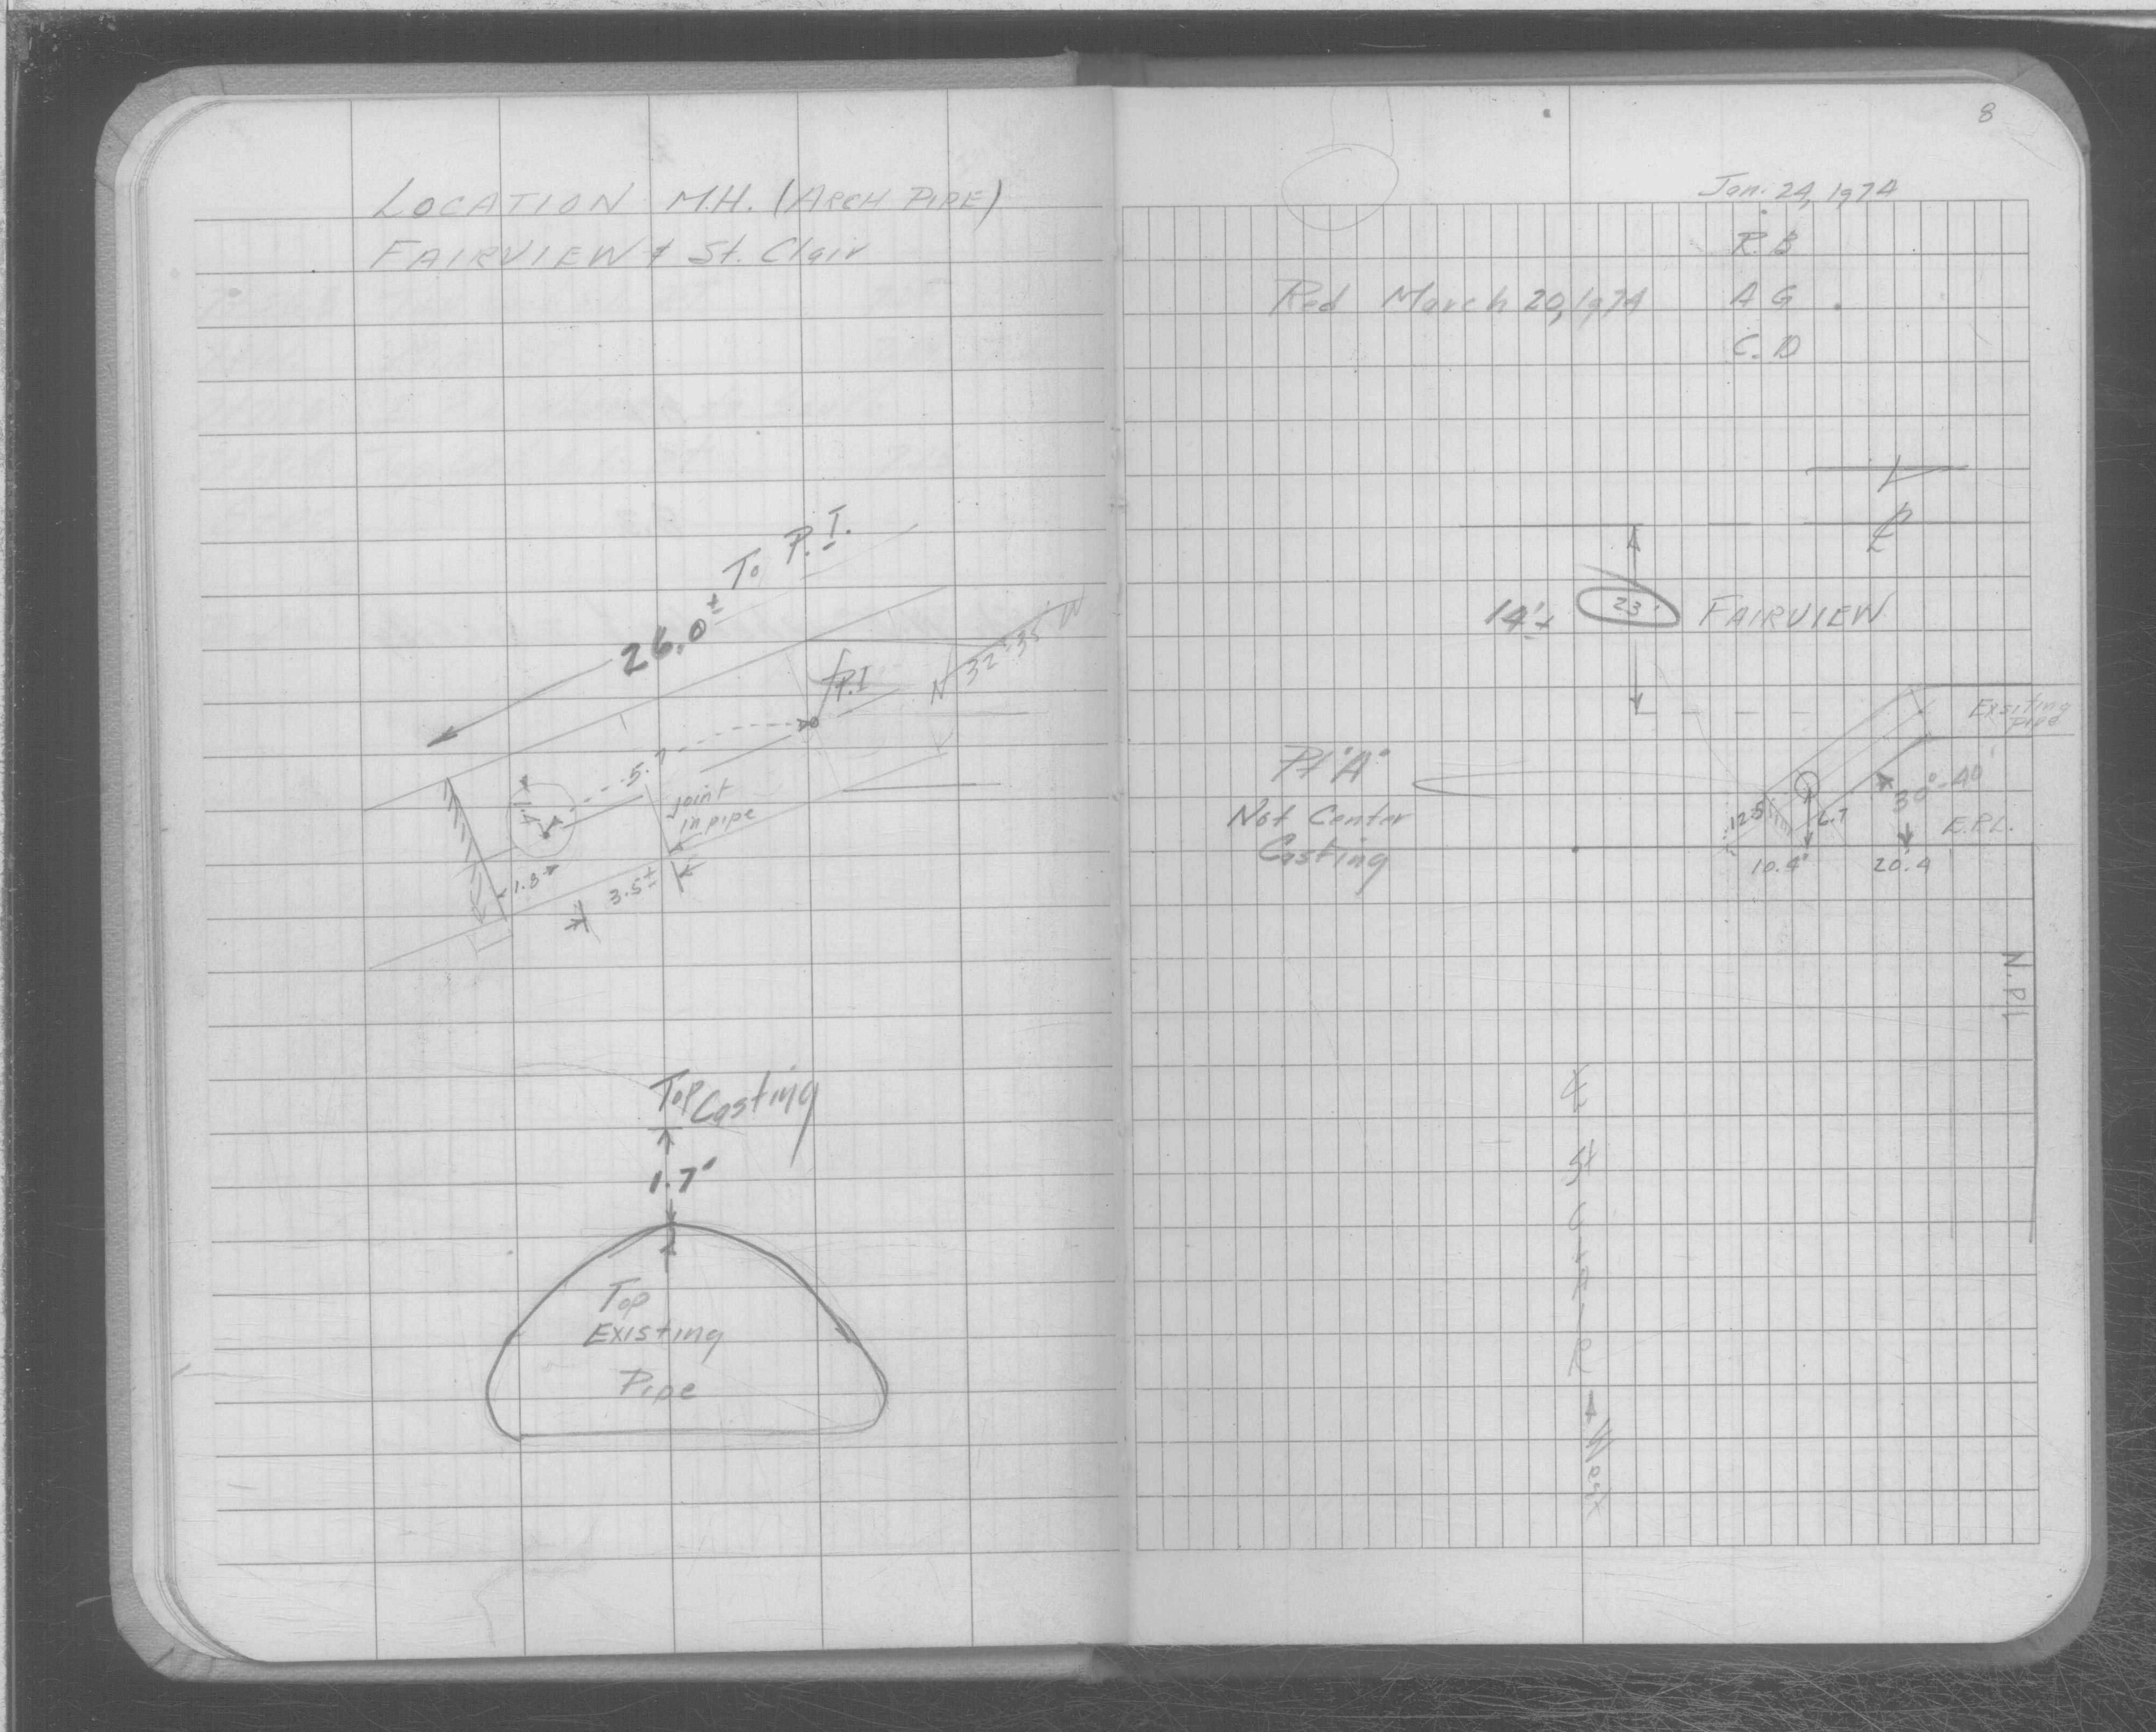 LOCATION M.H. (ARCH PIPE)
FAIRVIEW & St. Clair
26.0± To P.I.
P.I
N 32°35' W
5.7
A
joint
in pipe
1.8
3.5±
Top Casting
1.7'
Top
Existing
Pipe
8
Jan. 24, 1974
R.B
Red March 20, 1974 A G
C. D
℄
14'± 23' FAIRVIEW
Exsiting
Pipe
Pt "A"
Not Center
Casting
30°-40'
12.5
6.7
E.P.L.
10.4'
20.4
N.P.L
℄ St CLAIR
West